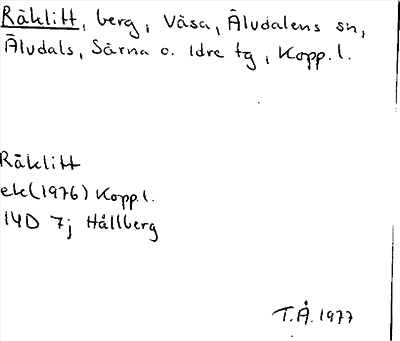 Råklitt, berg, Våsa, Älvdalens sn,
Älvdals, Särna o. Idre tg, Kopp. l.
Råklitt
ek (1976) Kopp. l.
14D 7j Hållberg
T.Å. 1977